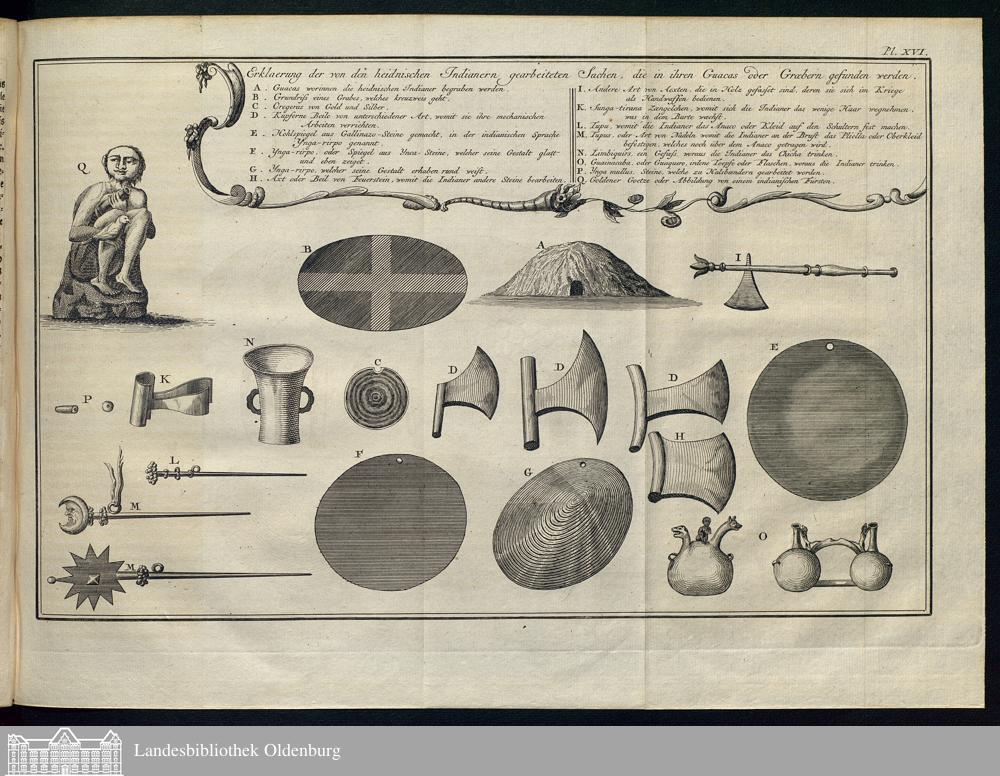 Pl. XVI.
Erklaerung der von den heidnischen Indianern gearbeiteten Sachen, die in ihren Guacas oder Græbern gefunden werden.
A. Guacas worinnen die heidnischen Indianer begraben werden.
B. Grundriss eines Grabes, welches kreuzweis geht.
C. Oregeras von Gold und Silber.
D. Kupferne Beile von unterschiedener Art, womit sie ihre mechanischen
Arbeiten verrichten.
E. Hohlspiegel aus Gallinazo-Steine gemacht, in der indianischen Sprache
Ynga-rirpo genannt.
F. Ynga-rirpo, oder Spiegel aus Ynca-Steine, welcher seine Gestalt glatt
und eben zeiget.
G. Ynga-rirpo, welcher seine Gestalt erhaben rund weist.
H. Axt oder Beil von Feuerstein, womit die Indianer andere Steine bearbeiten.
I. Andere Art von Aexten, die in Holz gefasst sind, deren sie sich im Kriege
als Handwaffen bedienen.
K. Sunga-tirana Zängelchen, womit sich die Indianer das wenige Haar wegnehmen,
was in dem Barte wæchst.
L. Tupu, womit die Indianer das Anaco oder Kleid auf den Schultern fest machen.
M. Tupus, oder Art von Nadeln womit die Indianer an der Brust das Pliella oder Oberkleid
befestigen, welches noch über dem Anaco getragen wird.
N. Limbiquirs, ein Gefäss, woraus die Indianer das Chicha trinken.
O. Guainacaba, oder Guaquero, irdene Tœpfe oder Flaschen, woraus die Indianer trinken.
P. Ynga mullus, Steine, welche zu Halsbændern gearbeitet worden.
Q. Goldener Goetze oder Abbildung von einem indianischen Fürsten.
Q
B
A
I
E
N
C
D
D
D
K
P
H
L
F
G
M
O
M
Landesbibliothek Oldenburg